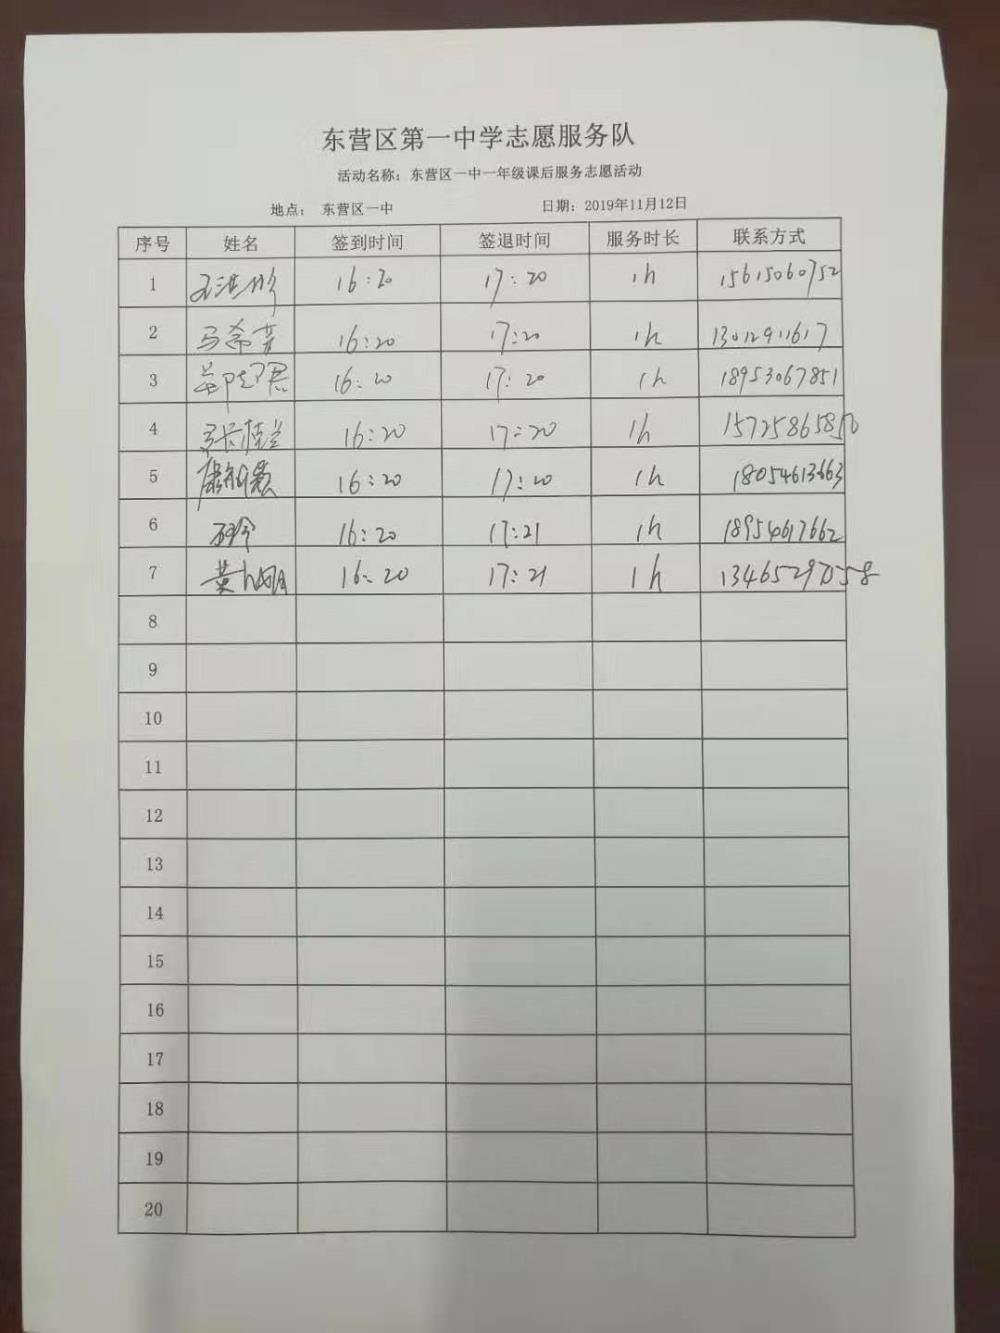 东营区第一中学志愿服务队
活动名称：东营区一中一年级课后服务志愿活动
地点： 东营区一中 日期：2019年11月12日
序号 姓名 签到时间 签退时间 服务时长 联系方式
1 16:20 17:20 1h 15615060752
2 马希芳 16:20 17:20 1h 13012911617
3 16:20 17:20 1h 18953067851
4 张桂兰 16:20 17:20 1h
5 16:20 17:20 1h 18054613663
6 16:20 17:21 1h 18954617662
7 黄 16:20 17:21 1h
8
9
10
11
12
13
14
15
16
17
18
19
20